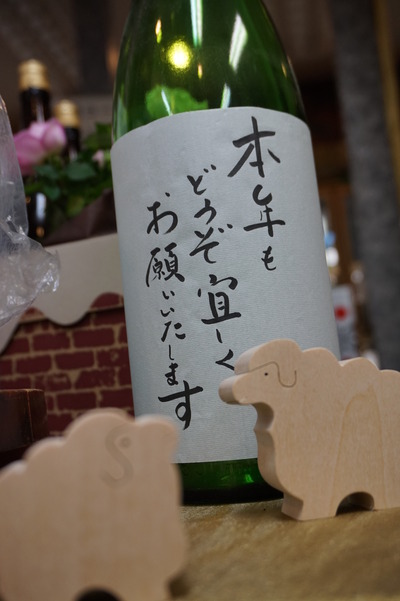 本年も
どうぞ宜しく
お願いいたします